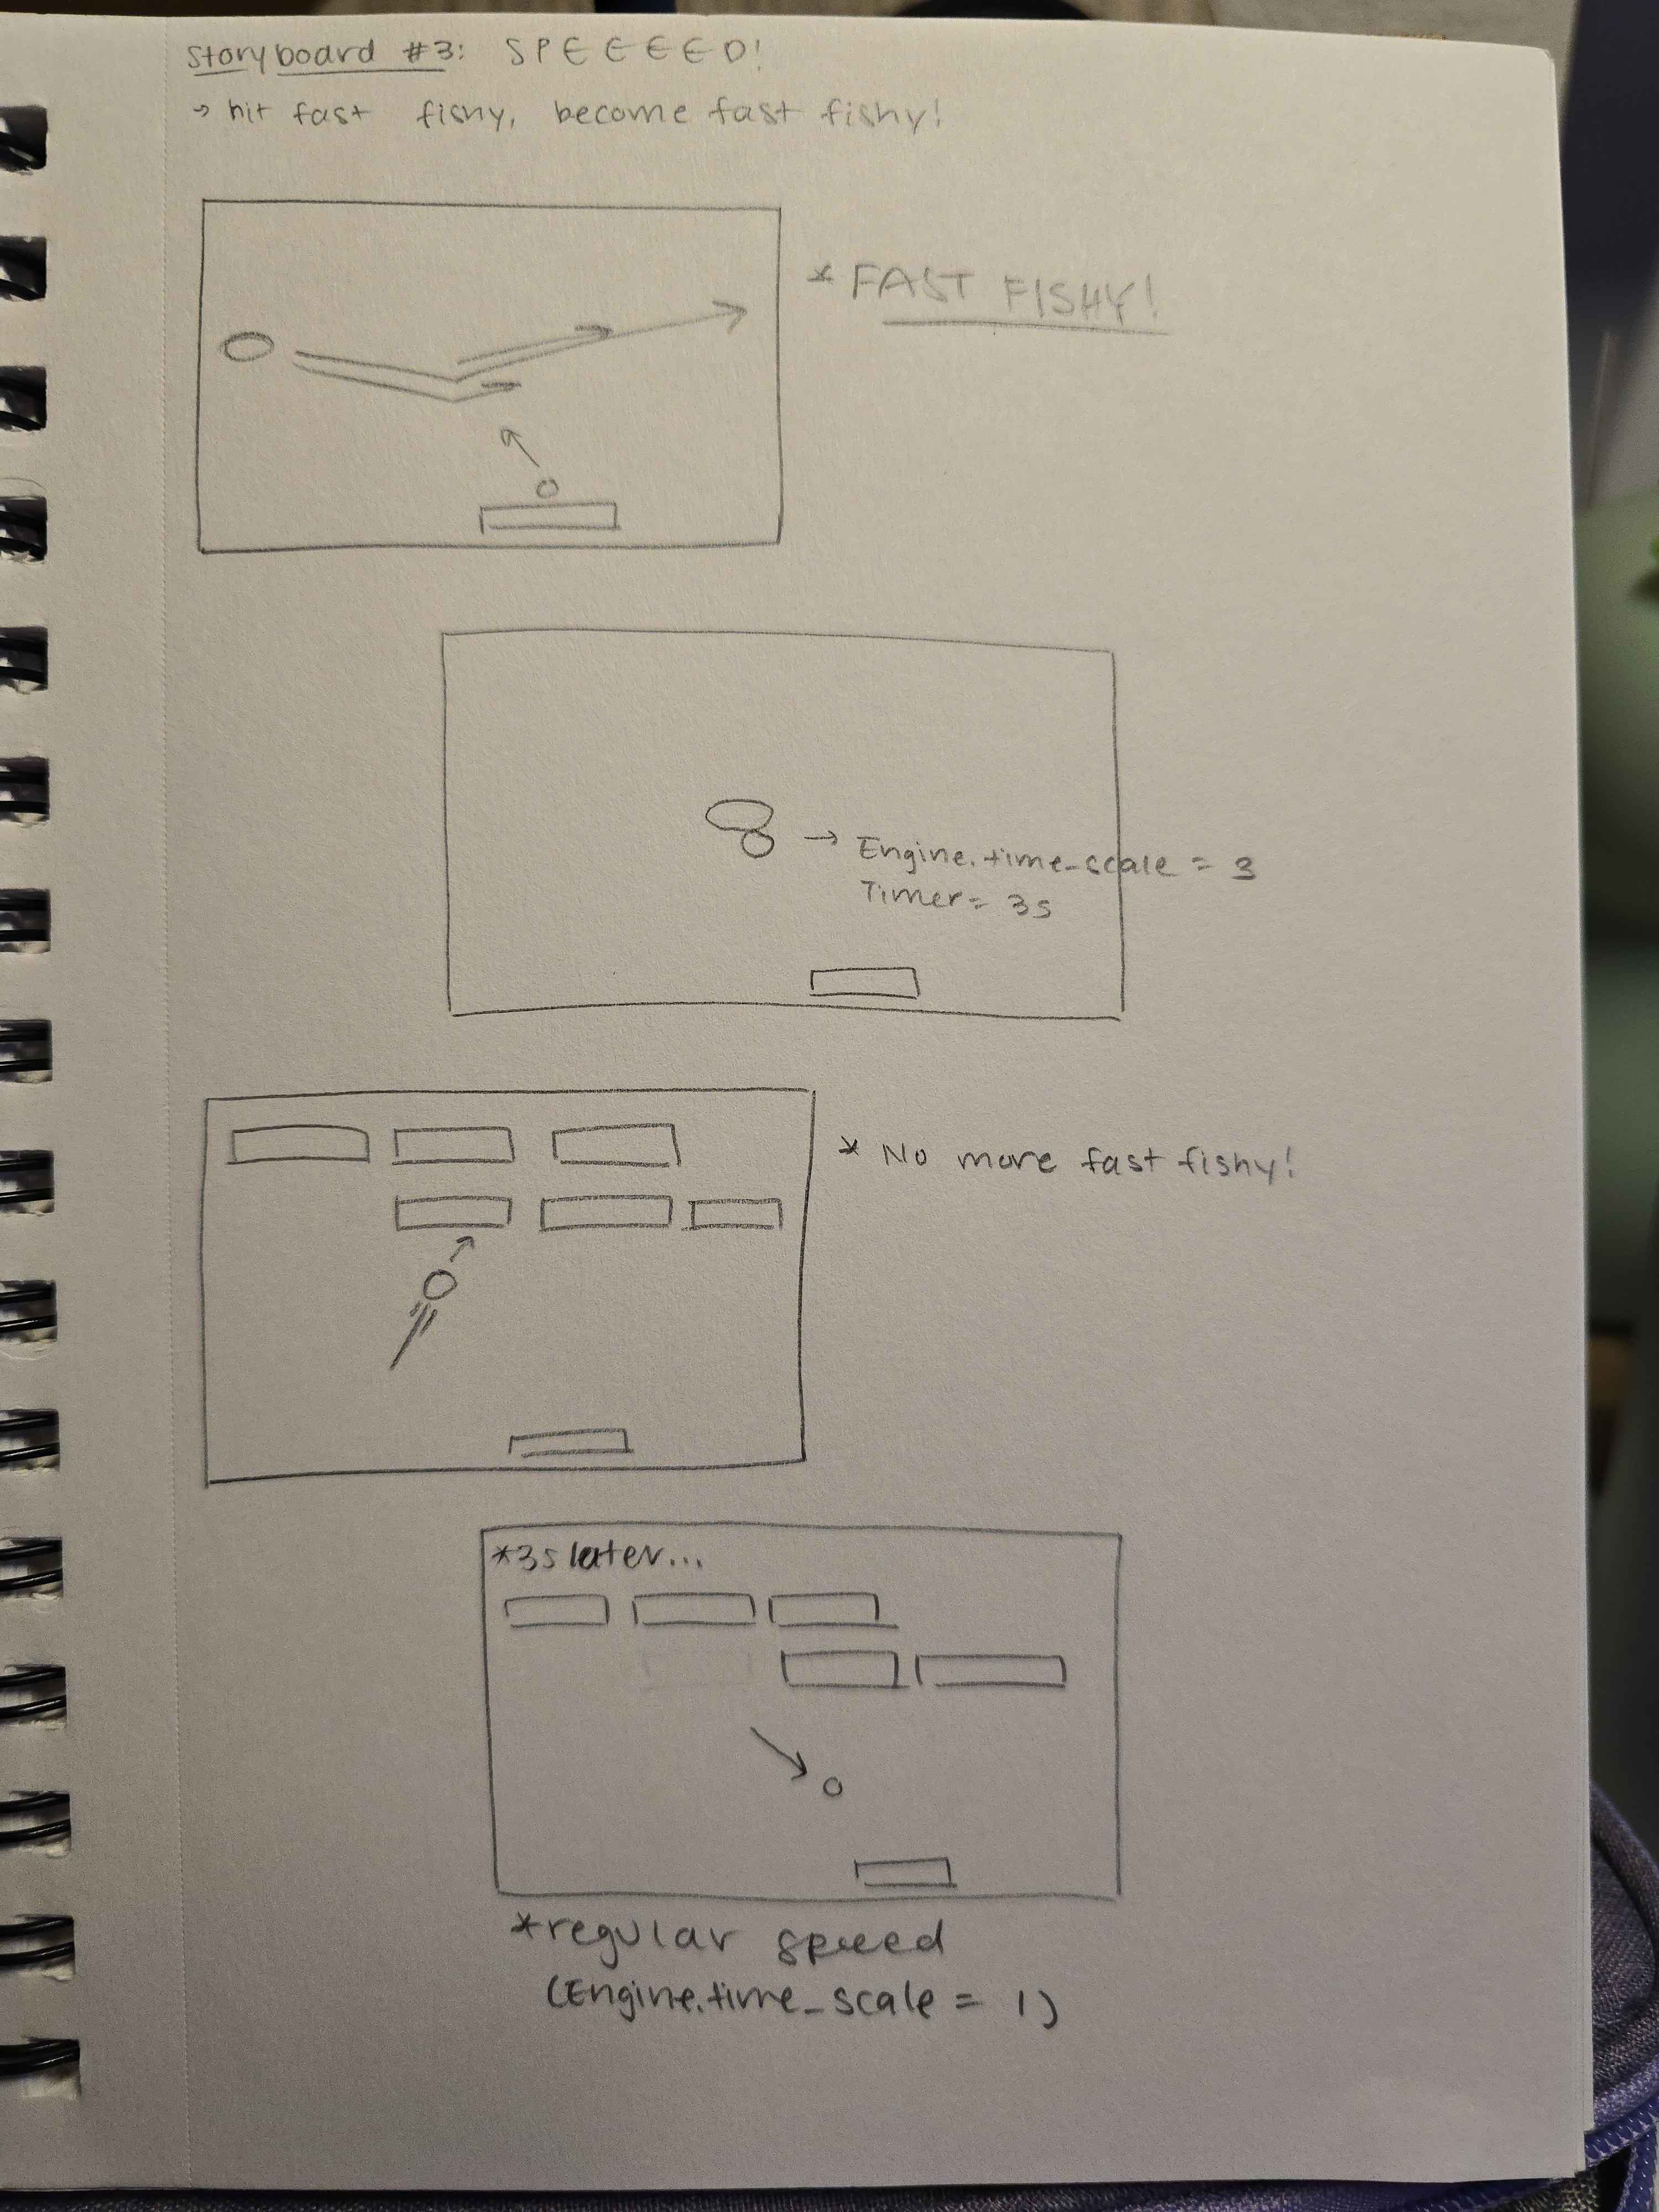 Storyboard #3: SPEEEED!
→ hit fast fishy, become fast fishy!
* FAST FISHY!
→ Engine.time_scale = 3
Timer= 3s
* No more fast fishy!
*3s later...
*regular speed
(Engine.time_scale = 1)